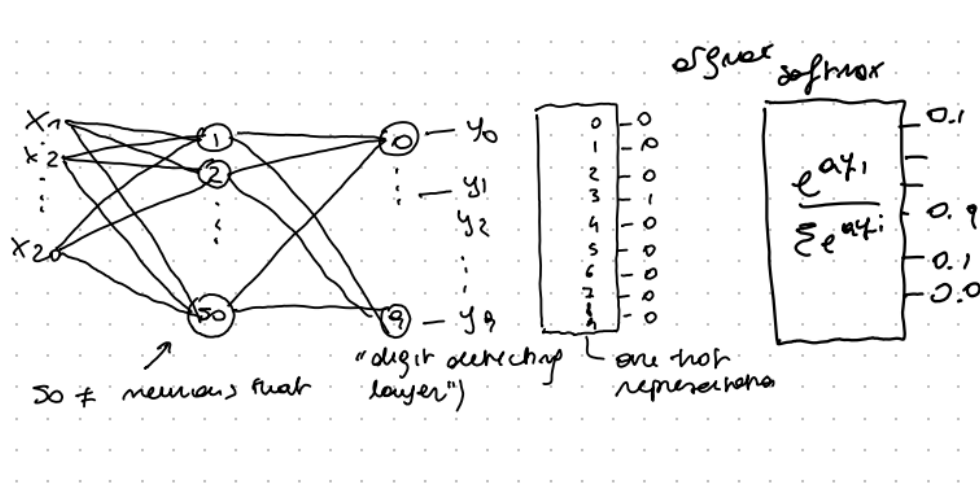 softmax
x1
x2
x20
1
2
50
0
9
y0
y1
y2
y9
0 0
1 0
2 0
3 1
4 0
5 0
6 0
7 0
8 0
9
0.1
0.9
0.1
0.0
e^ay1
Σe^ayi
50 ≠ neurons that
"digit detecting
layer")
one hot
representation